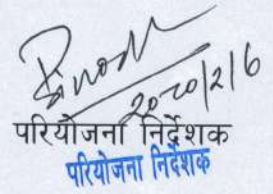 2020/2/6
परियोजना निर्देशक
परियोजना निर्देशक